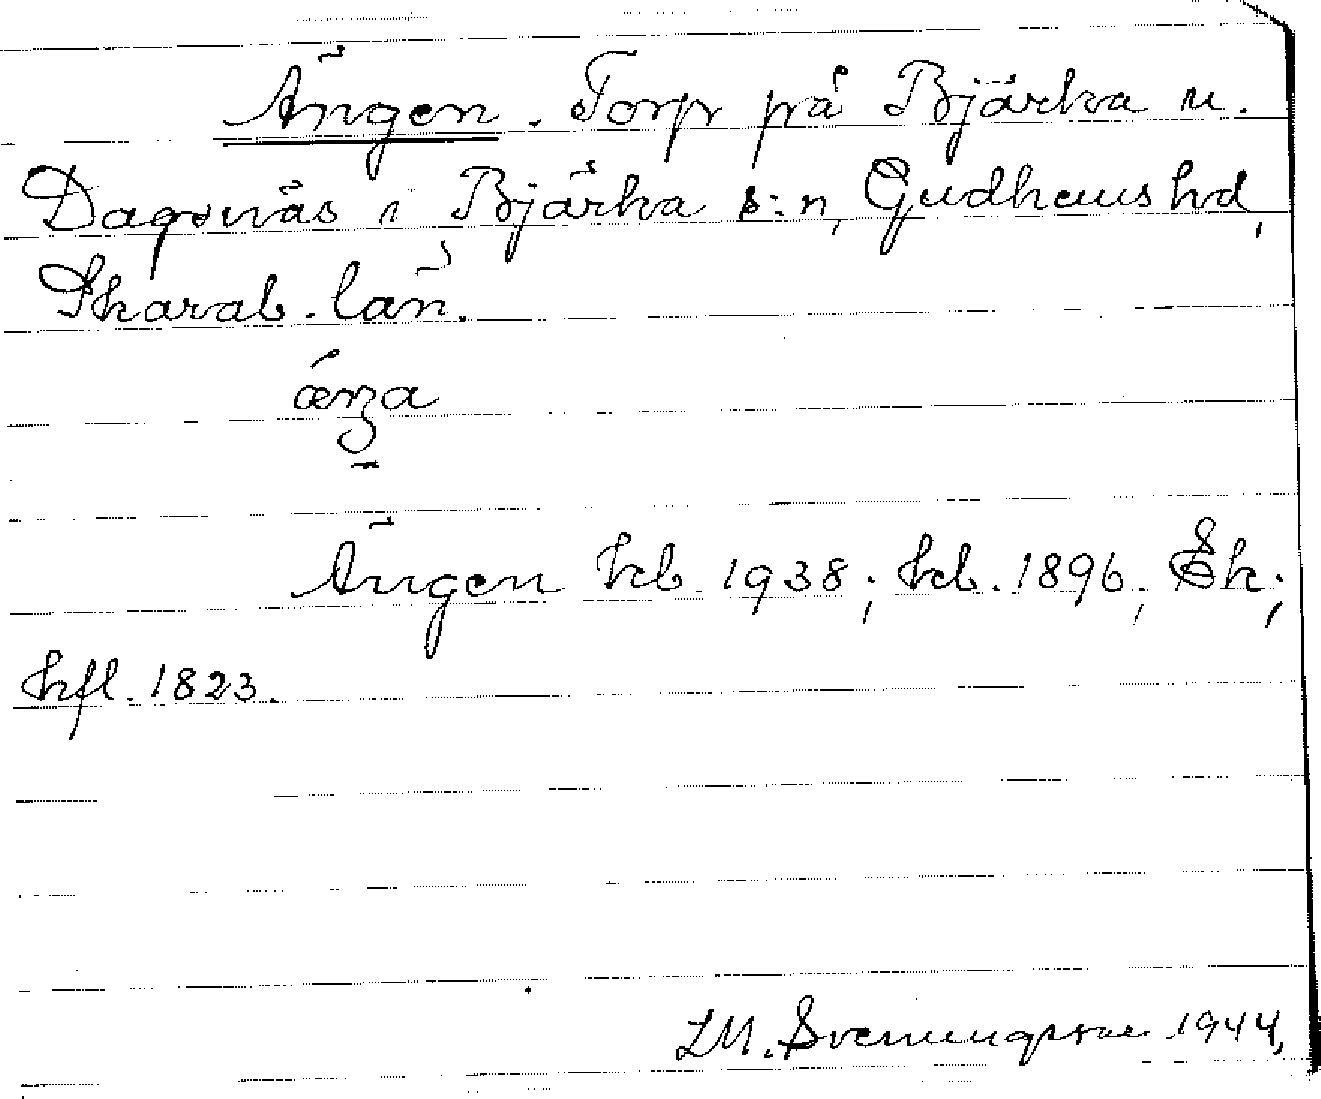 Ängen. Torp på Bjärka u.
Dagsnäs i Bjärka s:n, Gudhems hd,
Skarab. län.
Ängen kb 1938; kb. 1896; Ek;
hfl. 1823.
LM. Svenungsson 1944,